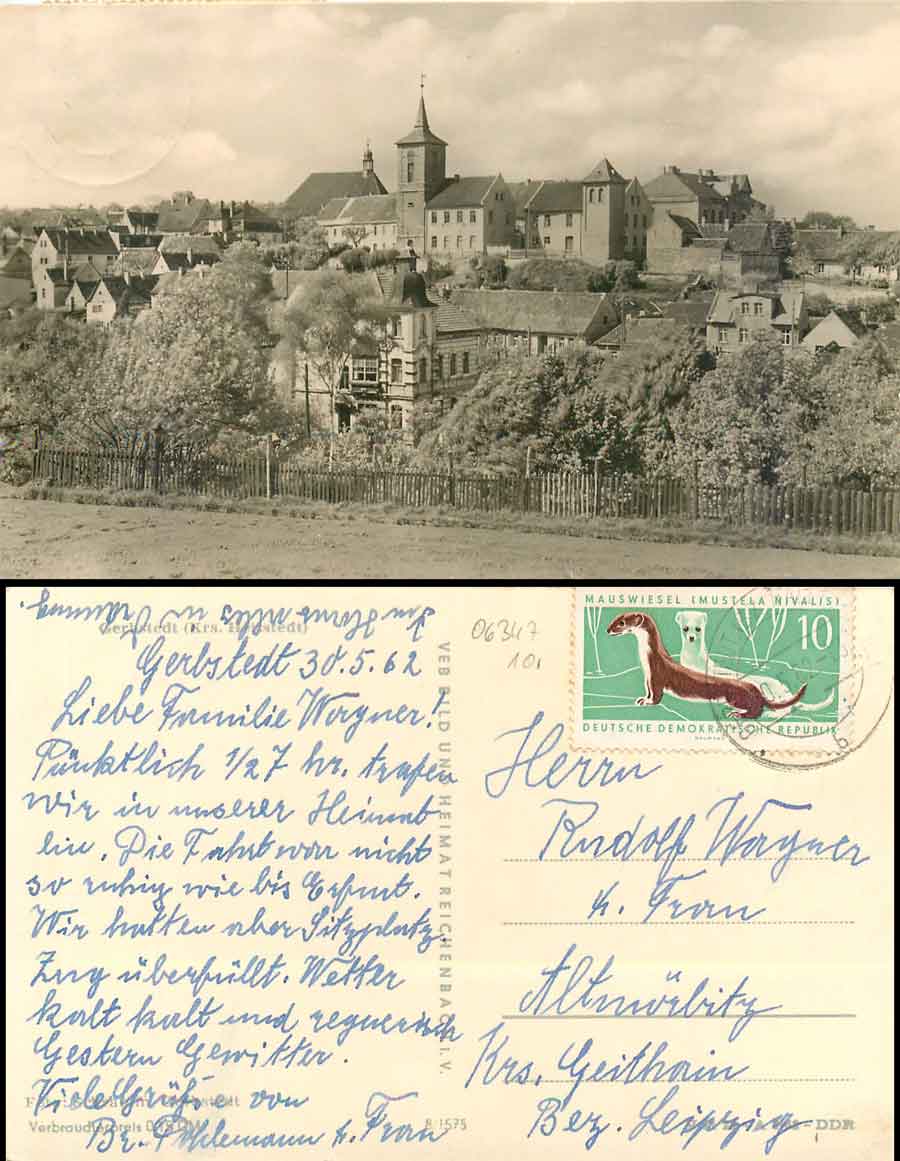 Gerbstedt (Krs. Hettstedt)
Gerbstedt 30.5.62
Liebe Familie Wagner!
Pünktlich 1/2 7 hr. trafen
wir in unserer Heimat
ein. Die Fahrt war nicht
so ruhig wie bis Erfurt.
Wir hatten aber Sitzplatz.
Zug überfüllt. Wetter
kalt kalt und regnerisch
Gestern Gewitter.
Viele Grüße von
u. Frau
Verbraucherpreis
B 1575
VEB BILD UND HEIMAT REICHENBACH I. V.
06347
10,
MAUSWIESEL (MUSTELA NIVALIS)
10
DEUTSCHE DEMOKRATISCHE REPUBLIK
b
Herrn
Rudolf Wagner
u. Frau
Altmörbitz
Krs. Geithain
Bez. Leipzig
DDR